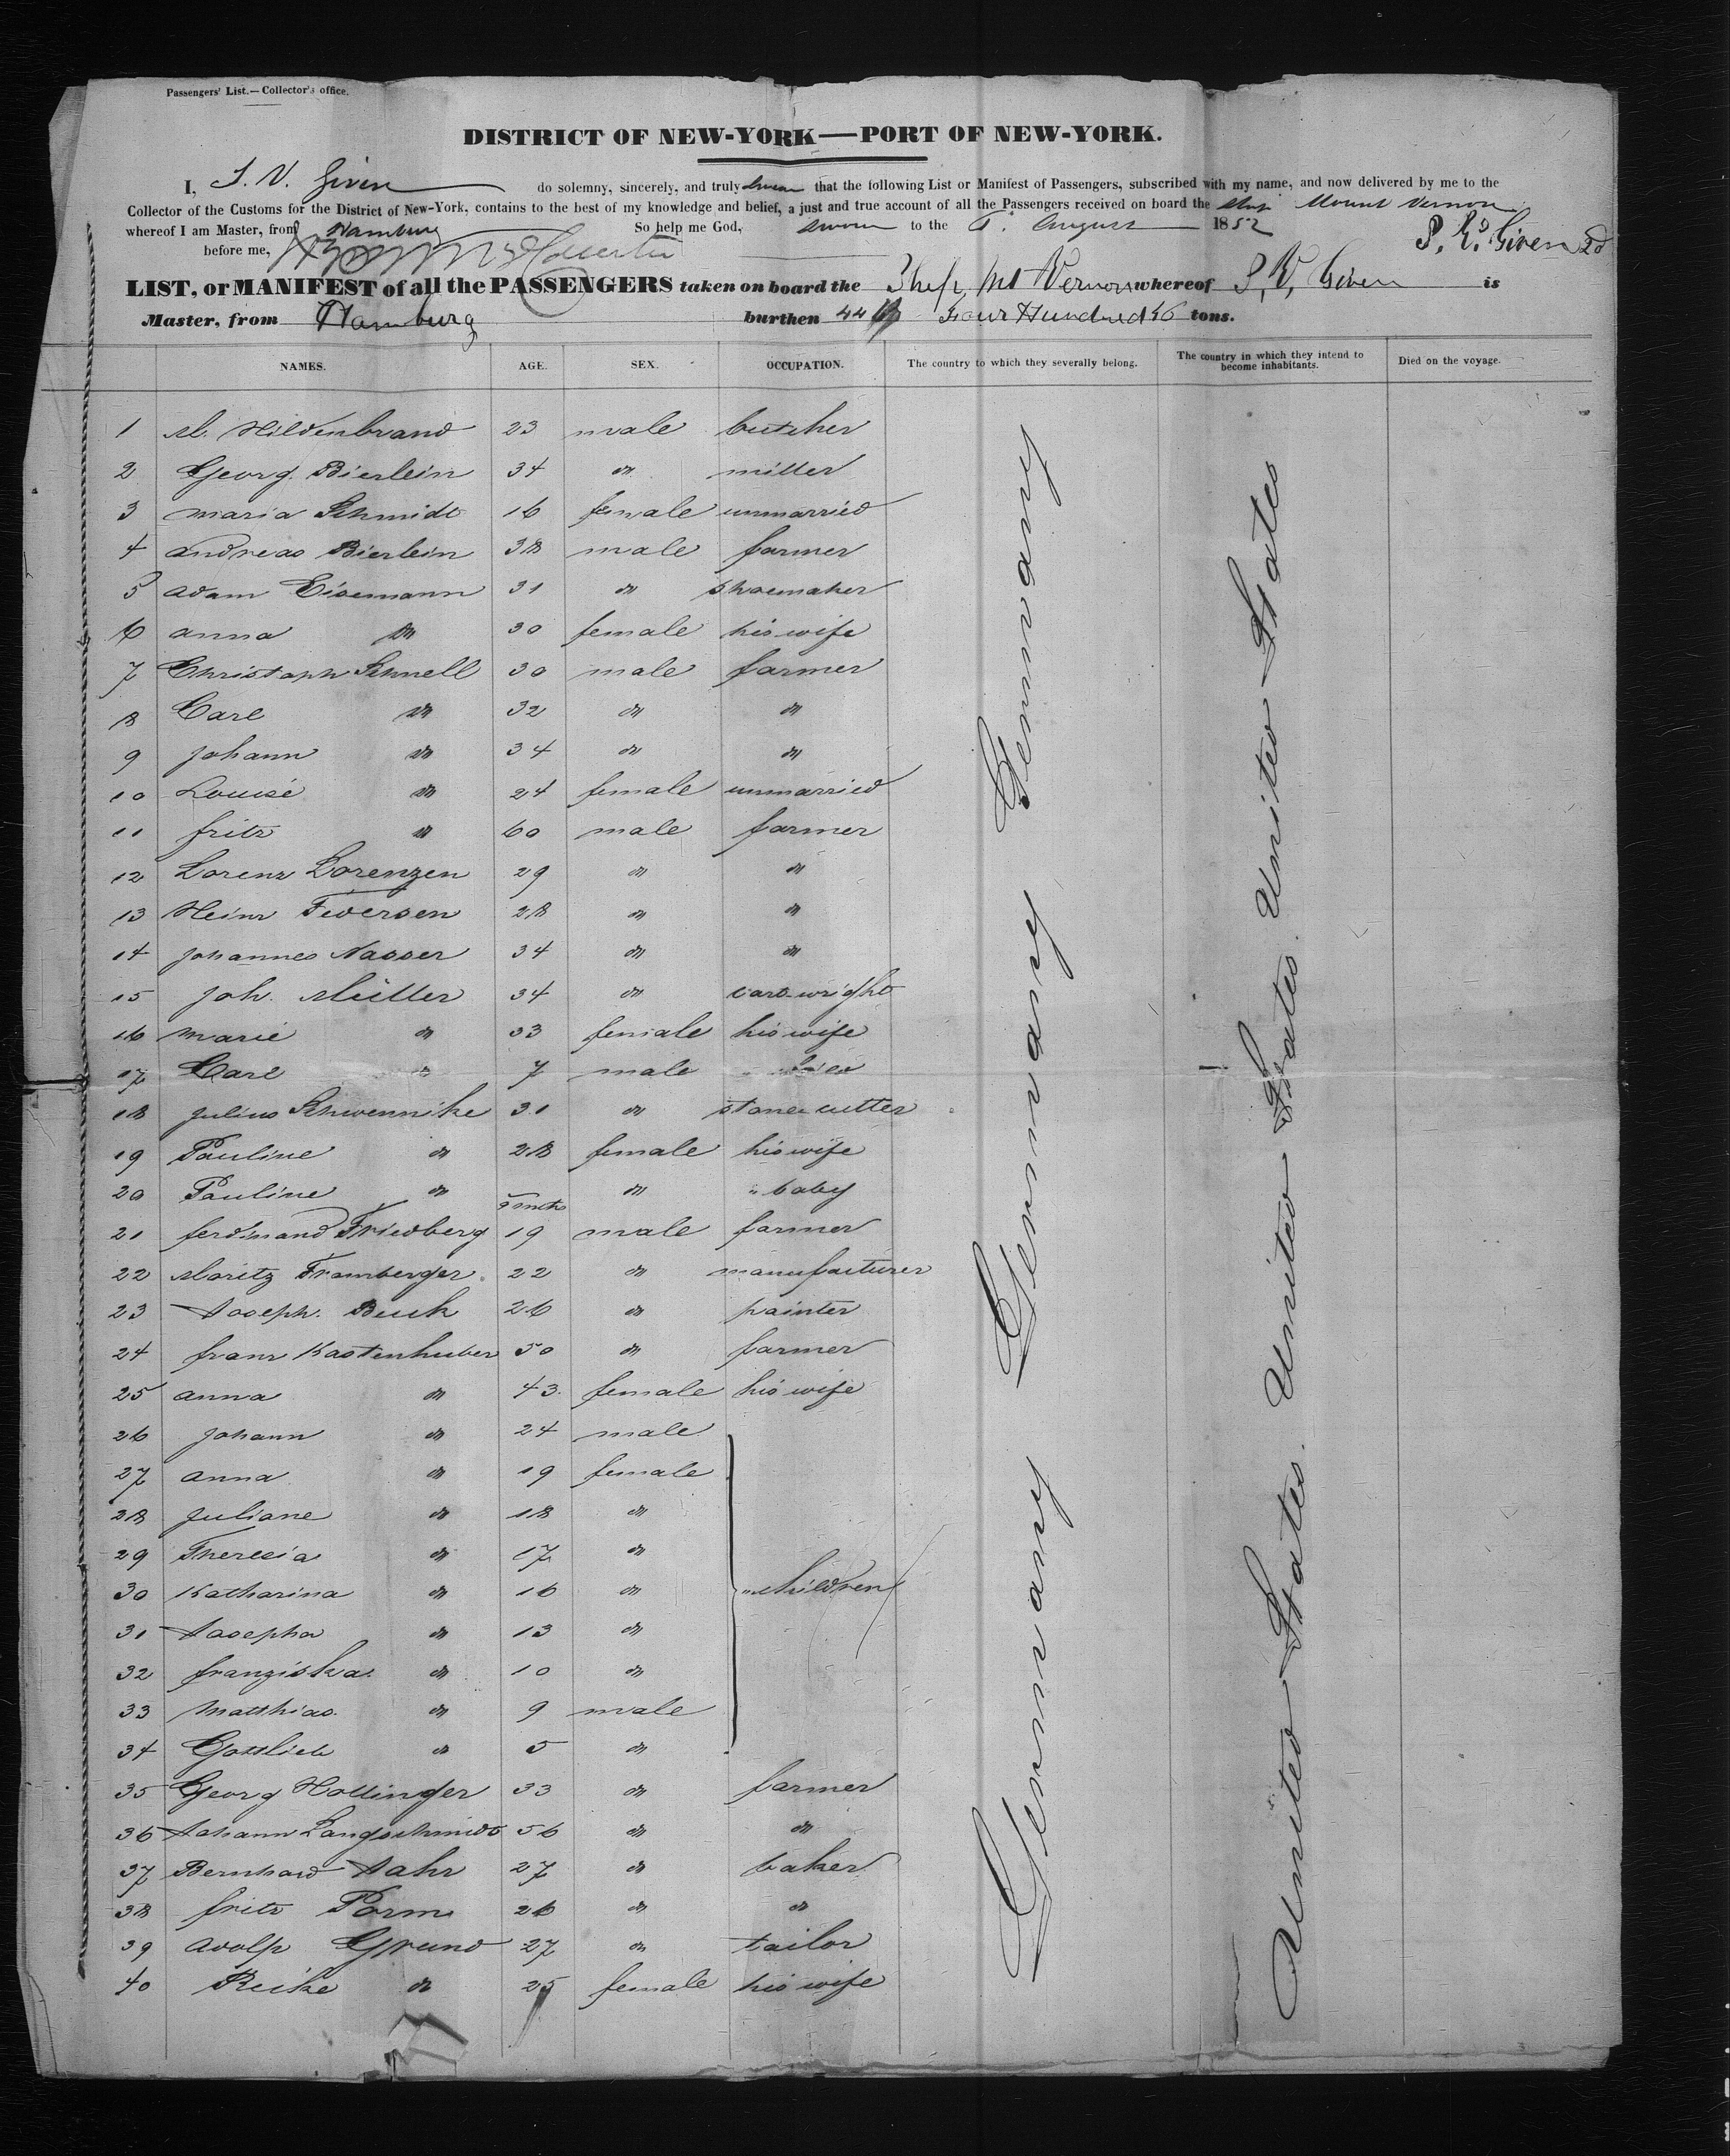 Passengers' List.—Collector's office.
DISTRICT OF NEW-YORK—PORT OF NEW-YORK.
I, S. V. Given do solemny, sincerely, and truly swear that the following List or Manifest of Passengers, subscribed with my name, and now delivered by me to the
Collector of the Customs for the District of New-York, contains to the best of my knowledge and belief, a just and true account of all the Passengers received on board the Ship Mount Vernon
whereof I am Master, from Hamburg So help me God, sworn to the August 1852
before me, Given
LIST, or MANIFEST of all the PASSENGERS taken on board the Ship Mt Vernon whereof S. V. Given is
Master, from Hamburg burthen Four Hundred 46 tons.
NAMES. AGE. SEX. OCCUPATION. The country to which they severally belong. The country in which they intend to become inhabitants. Died on the voyage.
1 M. Hildenbrand 23 male butcher
2 Georg Bierlein 34 do miller
3 Maria Schmidt 16 female unmarried
4 Andreas Bierlein 38 male farmer
5 Adam Eisemann 31 do shoemaker
6 Anna do 30 female his wife
7 Christoph Schnell 30 male farmer
8 Carl do 32 do do
9 Johann do 34 do do
10 Louise do 24 female unmarried
11 fritz do 60 male farmer
12 Lorenz Lorenzen 29 do do
13 Heinr Fedversen 28 do do
14 Johannes Nasser 34 do do
15 Joh. Müller 34 do cartwright
16 Marie do 33 female his wife
17 Carl do 7 male
18 Julius Schwennike 31 do stone cutter
19 Pauline do 28 female his wife
20 Pauline do 9 mths do " baby
21 ferdinand Friedberg 19 male farmer
22 Moritz Framberger 22 do manufacturer
23 Joseph Buck 26 do painter
24 franz Kastenhuber 50 do farmer
25 Anna do 43 female his wife
26 Johann do 24 male
27 Anna do 19 female
28 Juliane do 18 do
29 Theresia do 17 do
30 Katharina do 16 do " children
31 Josepha do 13 do
32 franziska do 10 do
33 Matthias do 9 male
34 Gottlieb do 5 do
35 Georg Hollinger 33 do farmer
36 Johann Langschmidt 56 do do
37 Bernhard Jahr 27 do baker
38 fritz Porm 26 do do
39 Adolp Grund 27 do tailor
40 Reike do 25 female his wife
Germany Germany Germany Germany
United States United States United States